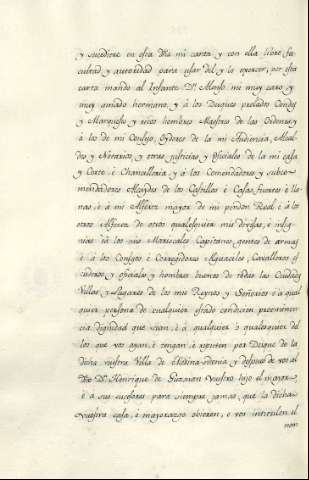 y sucediere en esta Dha mi carta y con ella libre fa-
cultad y autoridad para usar del y lo exercer; por esta
carta mando al Infante Dn. Alonso mi muy caro y
muy amado hermano, y à los Duques prelados Condes
y Marqueses y ricos hombres Maestres de las Ordenes y
à los de mi Consejo, Oydores de la mi Audiencia, Alcal-
des y Notarios, y otras justicias y oficiales de la mi casa
y Corte, è Chancilleria y à los Comendadores y subco-
mendadores Alcaydes de los Castillos è Casas fuertes è lla-
nas, è à mi Alferez mayor de mi pendon Real, è à los
otros Alferez de otros qualesquier mis divisas, è insig-
nias, è à los mis Mariscales Capitanes, gentes de armas
è à los Consejos è Corregidores Alguaciles, Cavalleros es-
cuderos, y oficiales y hombres buenos de todas las Ciudades
Villas, y Lugares de los mis Reynos y Señorios è à qual
quier persona de cualquier estado condicion preeminen-
cia dignidad que sean, è à qualquier o qualesquier de
los que vos ayan, è tengan, è reputen por Duque de la
dicha vuestra Villa de Medina-sidonia y despues de vos al
Dho Dn. Henrique de Guzman vuestro hijo el mayor,
è à sus sucesores para siempre jamas, que la dicha
vuestra casa, è mayorazgo obieren, e vos intitulen el
non